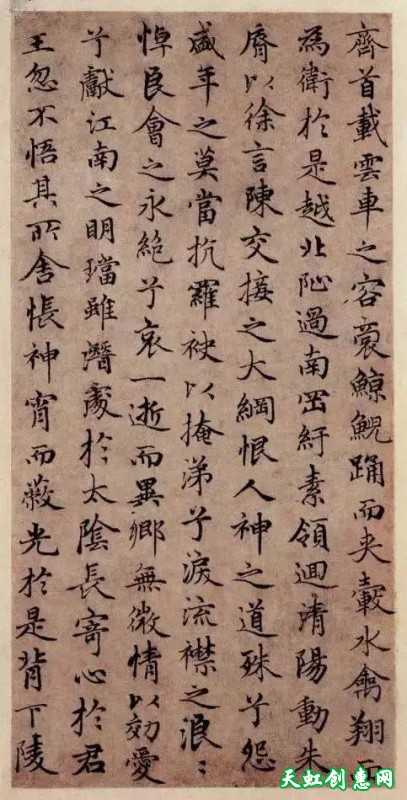 齊首載雲車之容裔鯨鯢踊而夾轂水禽翔而
為衛於是越北沚過南岡紆素領迴清陽動朱
脣以徐言陳交接之大綱恨人神之道殊兮怨
盛年之莫當抗羅袂以掩涕兮淚流襟之浪〻
悼良會之永絕兮哀一逝而異鄉無微情以効愛
兮獻江南之明璫雖潛處於太陰長寄心於君
王忽不悟其所舍悵神宵而蔽光於是背下陵
天虹创惠网